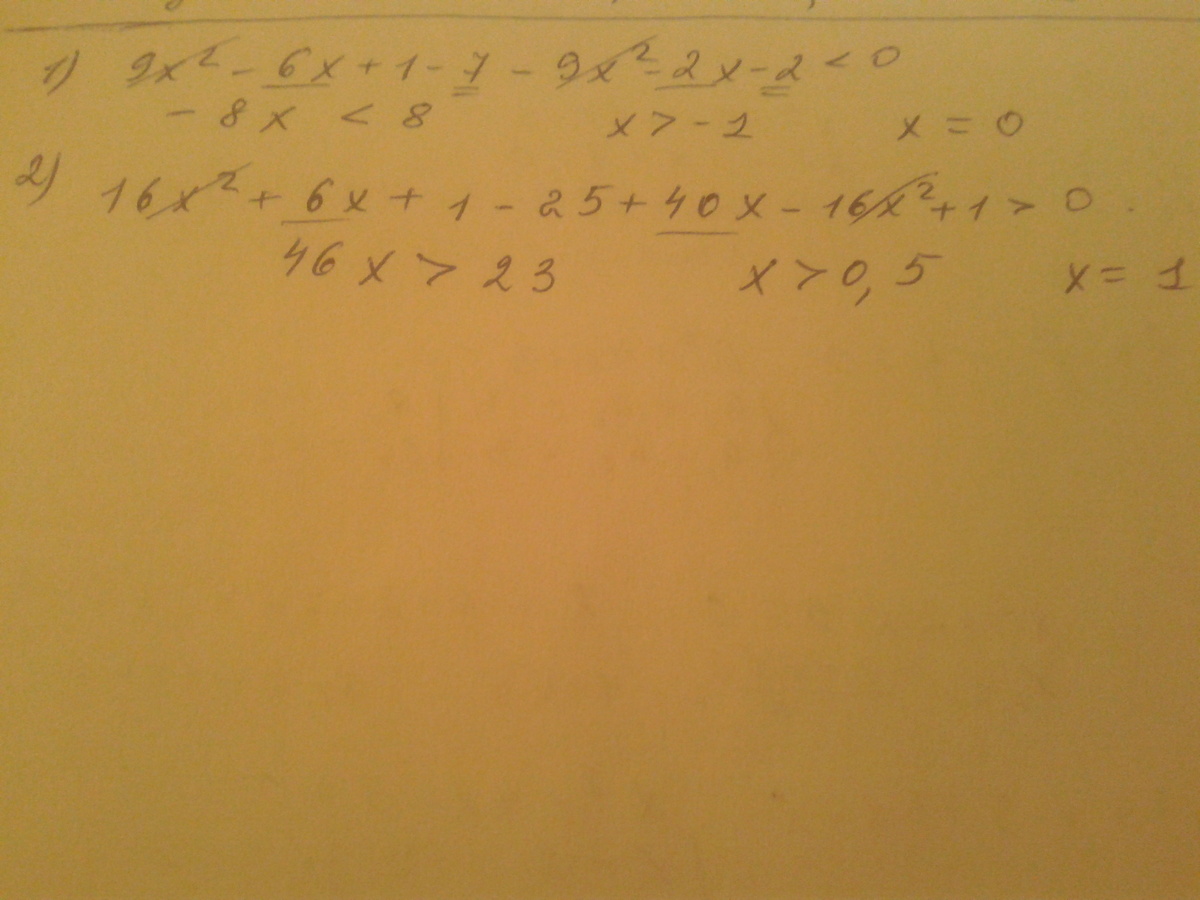 1) 9x² - 6x + 1 - 7 - 9x² - 2x - 2 < 0
- 8x < 8 x > - 1 x = 0
2) 16x² + 6x + 1 - 25 + 40x - 16x² + 1 > 0
46x > 23 x > 0,5 x = 1